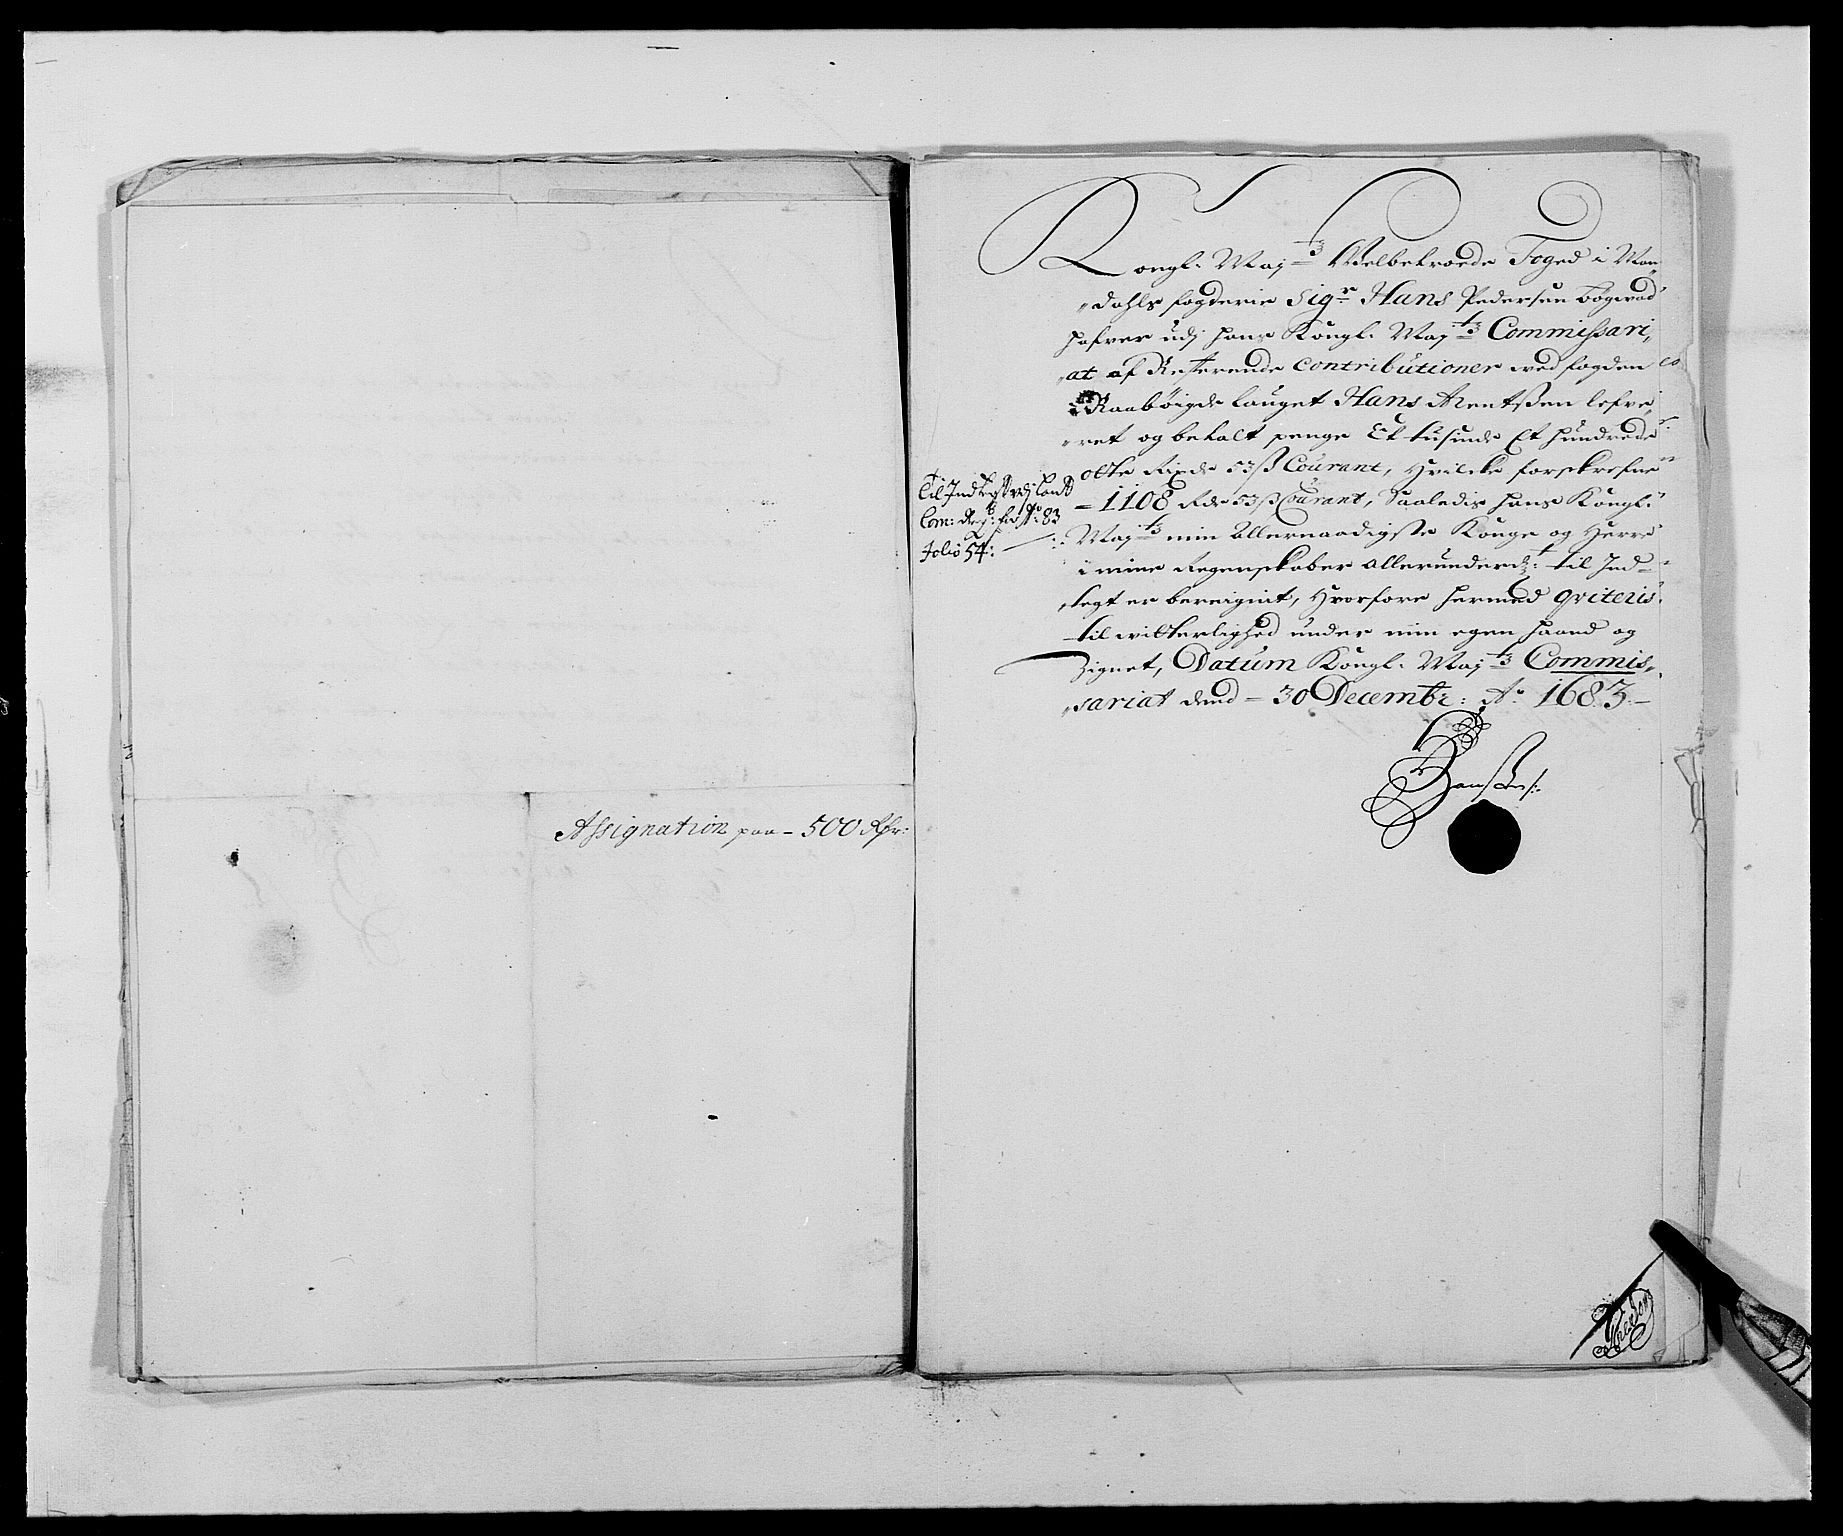 Assignation paa - 500 Rdr:
Kongl: Maj.ts Welbetroede Foged i Man„
„dahls fogderie Sigr Hans Pedersen Bogwad
hafver udj hans Kongl: Maj.ts Commissari„
„at af Resterende Contributioner wed fogden
i Raabøigde lauget Hans Arentssen lefve„
„ret og betalt penge Et tusinde Et hundrede
otte Rixdr 53 ß Courant, Hvilcke forskrefne
= 1108 Rdr 53 ß Courant, Saaledis hans Kongl:
Maj.ts min Allernaadigste Konge og Herre
i mine Regenskaber allerunderd:t til Ind-
tegt er bereignit, Hvorfore hermed qviteris
til witterlighed under min egen haand og
Zignet, Datum Kongl: Maj.ts Commis„
„sariat dend = 30 Decembr: Ao 1683 =
Til Indtegt udj
Com: Reg: for Ao 83
folio 54: